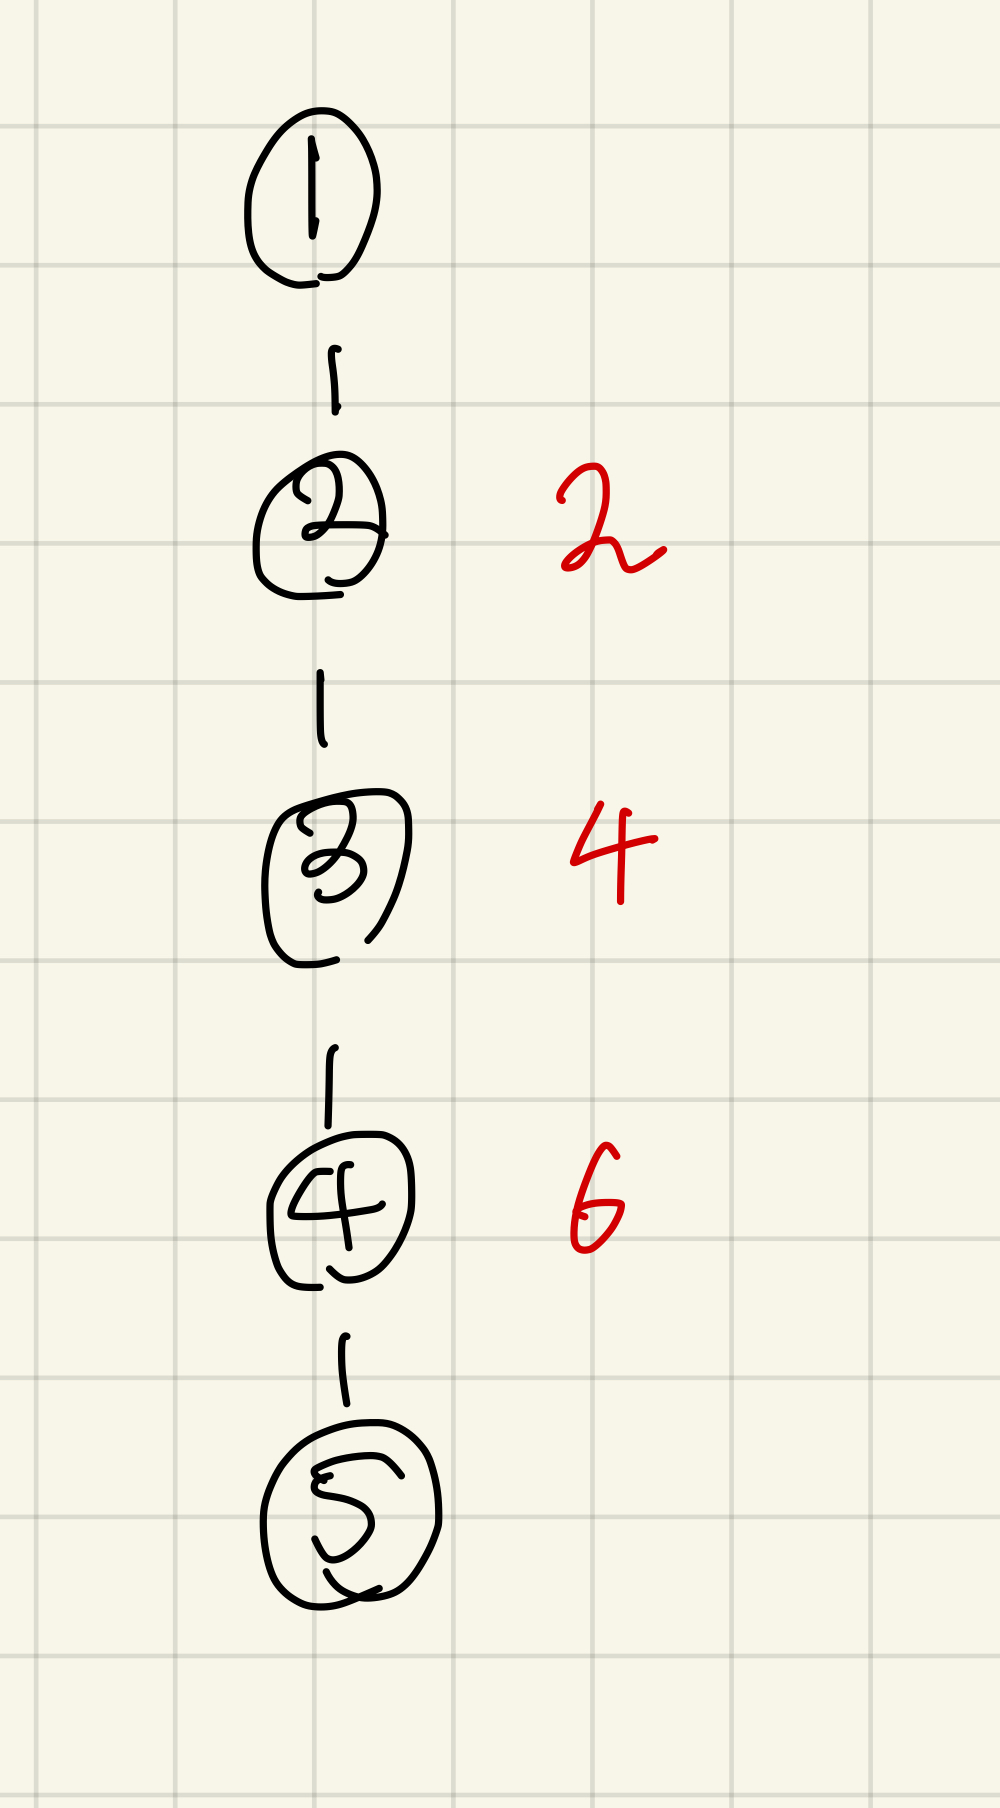 1
2 2
3 4
4 6
5